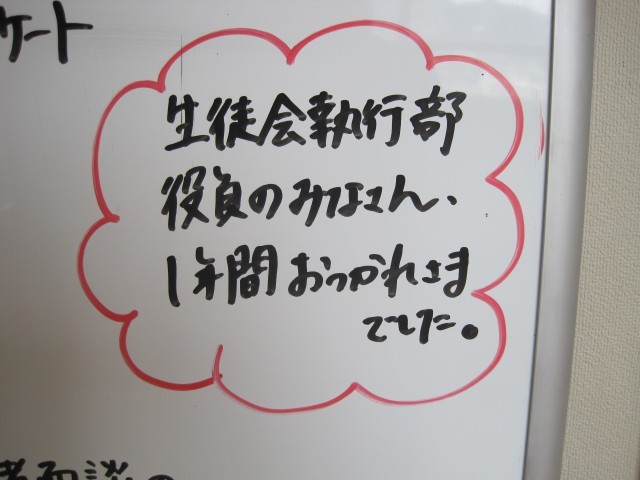 ケート
生徒会執行部
役員のみなさん、
1年間おつかれさま
でした。
者面談の